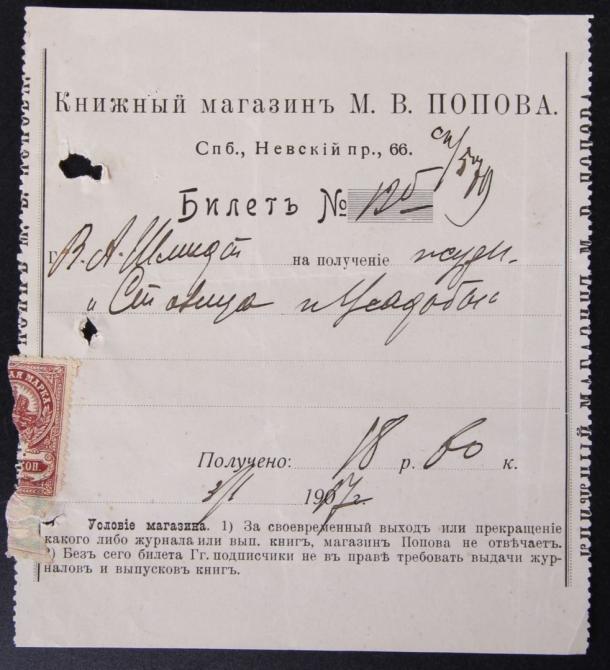 Книжный магазинъ М. В. ПОПОВА.
Спб., Невскій пр., 66.
Билетъ № 125
Г. В. А. Шмидт на полученіе журн.
"Столица и Усадьба"
Получено: 18 р. 60 к.
2/I 1917 г.
Условіе магазина. 1) За своевременный выходъ или прекращеніе
какого либо журнала или вып. книгъ, магазинъ Попова не отвѣчаетъ.
2) Безъ сего билета Гг. подписчики не въ правѣ требовать выдачи жур-
наловъ и выпусковъ книгъ.
АЯ МАРКА
КОП.
КНИЖНЫЙ МАГАЗИНЪ М. В. ПОПОВА